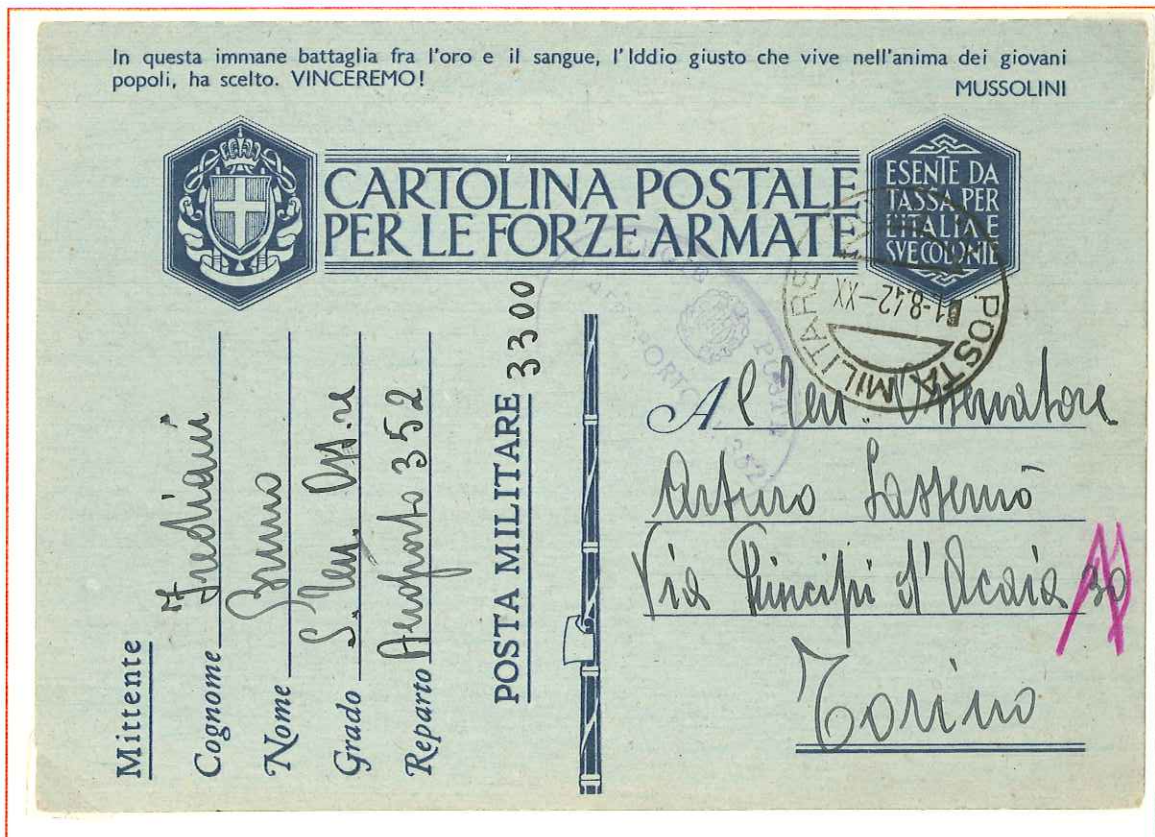 In questa immane battaglia fra l'oro e il sangue, l'Iddio giusto che vive nell'anima dei giovani
popoli, ha scelto. VINCEREMO!
MUSSOLINI
CARTOLINA POSTALE
PER LE FORZE ARMATE
ESENTE DA
TASSA PER
L'ITALIA E
SVE COLONIE
POSTA MILITARE
1-8.42-XX
POSTA
Mittente
Cognome Frediani
Nome Bruno
Grado S. Ten. Oss.re
Reparto Aeroporto 352
POSTA MILITARE 3300
Al Ten. Osservatore
Arturo
Via Principi d'Acaia 30
Torino